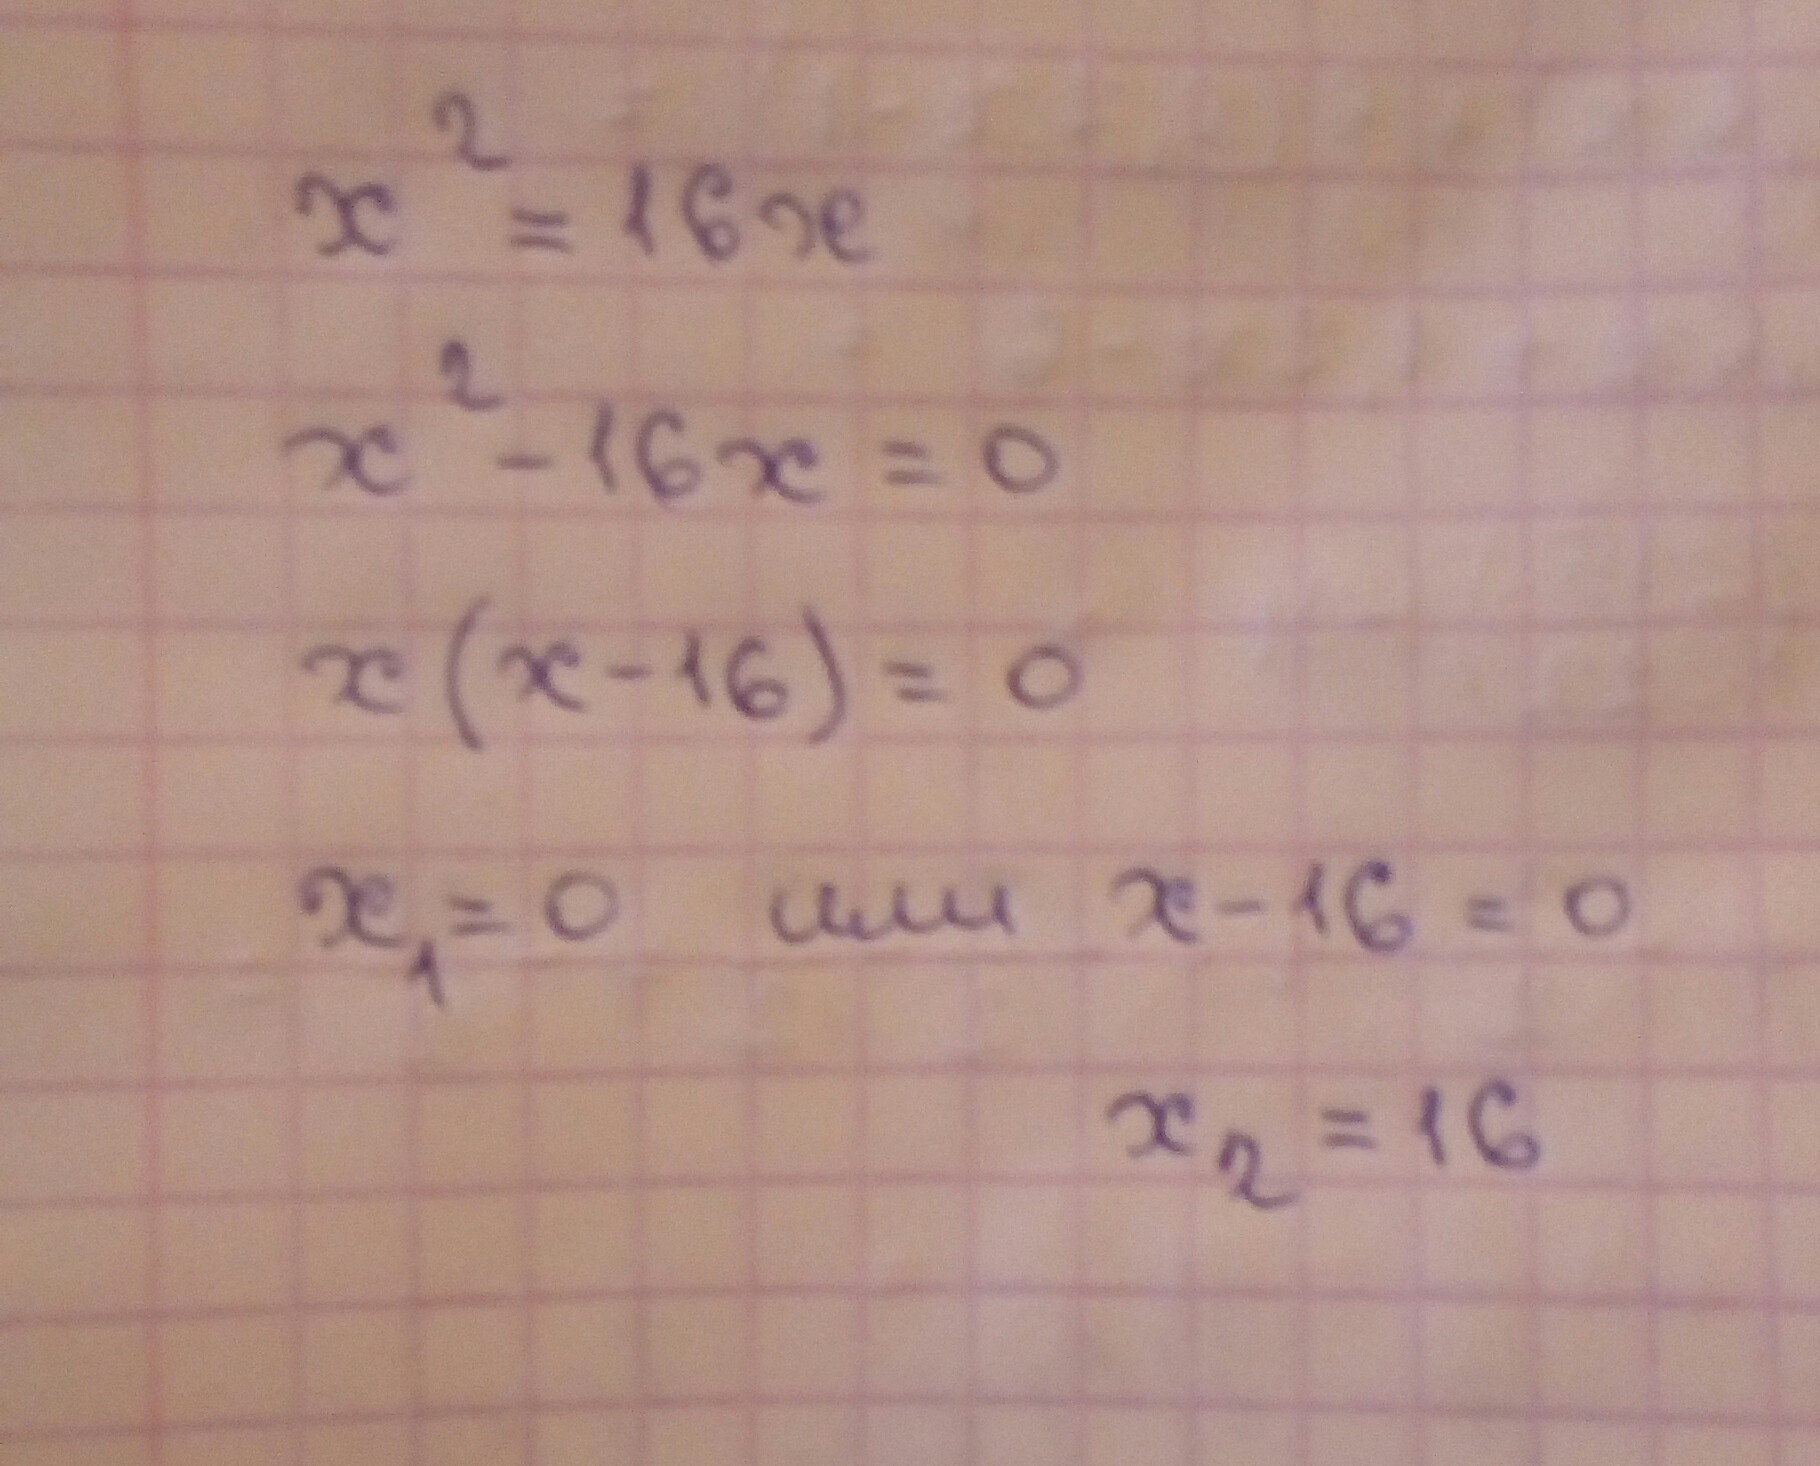 x² = 16x
x² - 16x = 0
x(x-16) = 0
x₁ = 0 или x - 16 = 0
x₂ = 16